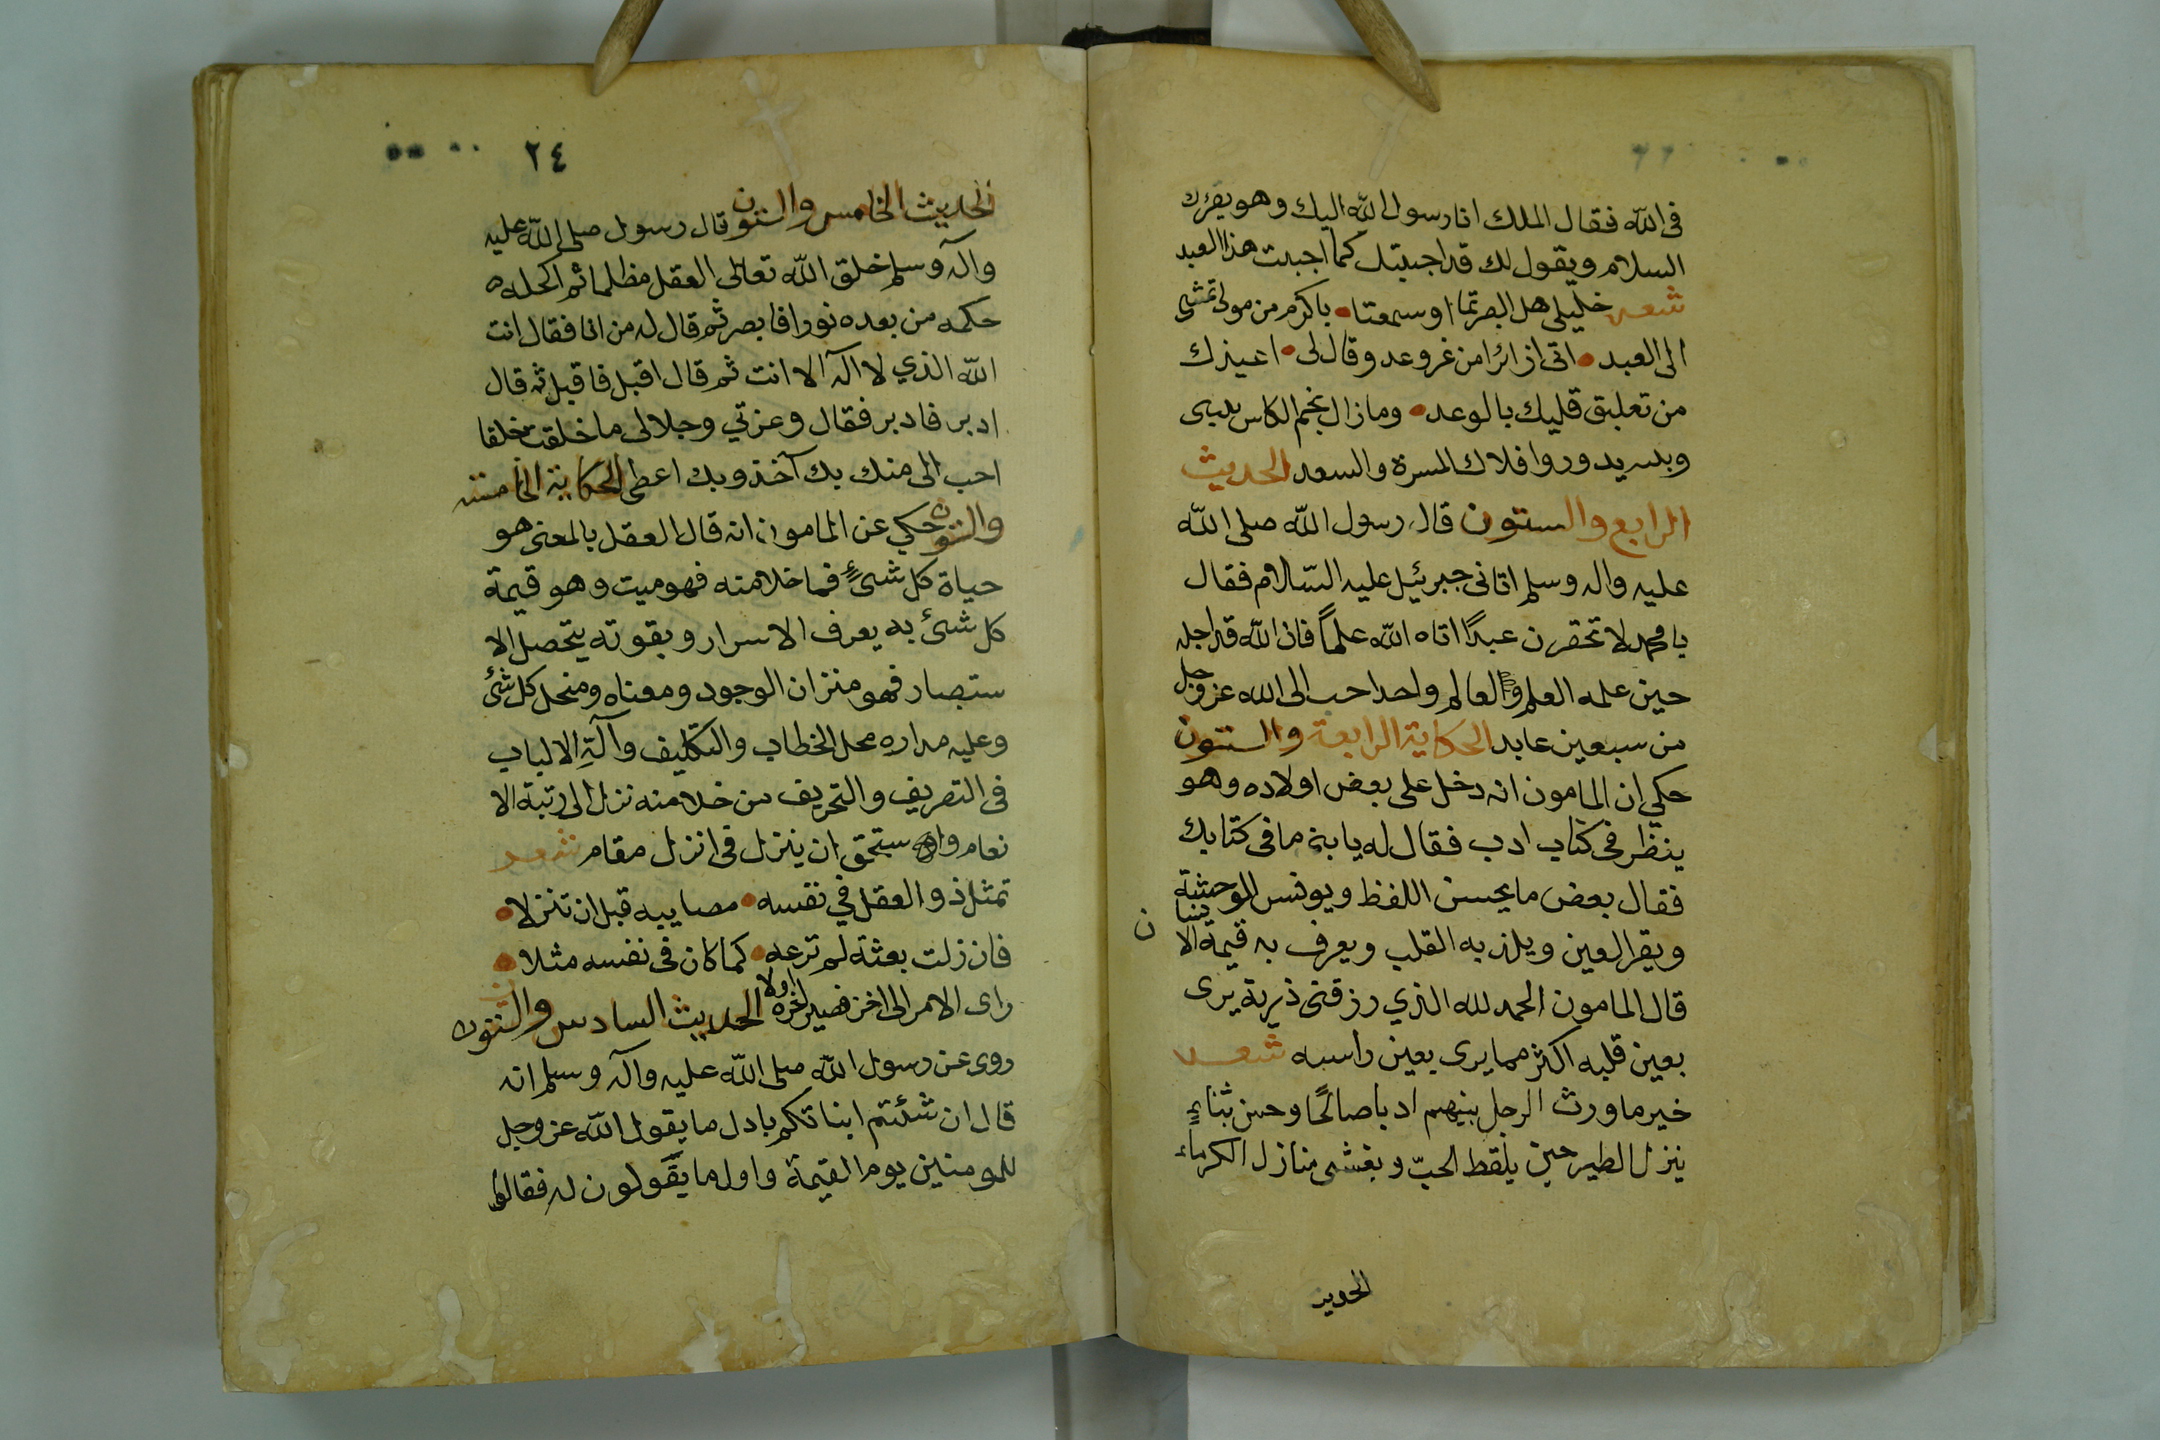 فى الله فقال الملك انا رسول الله اليك وهو يقرئك
السلام ويقول لك قد اجبتك كما اجبت هذا العبد
شعر خليلى هل ابصرتما او سمعتما باكرم من مولى تمشى
الى العبد اتى زائرا من غير وعد وقال لى اعيذك
من تعليق قلبك بالوعد ومازال نجم الكاس بينى
وبينه يدور وافلاك المسرة والسعد الحديث
الرابع والستون قال رسول الله صلى الله
عليه واله وسلم اتانى جبرئيل عليه السلام فقال
يا محمد لا تحقرن عبدًا اتاه الله علمًا فان الله قد اجله
حين علمه العلم والعالم واحد احب الى الله عز وجل
من سبعين عابد الحكاية الرابعة والستون
حكي ان المامون انه دخل على بعض اولاده وهو
ينظر فى كتاب ادب فقال له يا بنى ما فى كتابك
فقال بعض ما يحسن اللفظ ويونس الوحشة
ويقر العين ويلذ به القلب ويعرف به قيمة الا
قال المامون الحمد لله الذي رزقنى ذرية يرى
بعين قلبه اكثر مما يرى بعين راسه شعر
خير ما ورث الرجل بنيهم ادبا صالحًا وحسن ثناءٍ
ينزل الطير حين يلقط الحبّ ويغشى منازل الكرماء
الحديث
٢٤
الحديث الخامس والستون قال رسول صلى الله عليه
وآله وسلم خلق الله تعالى العقل مظلما ثم اكحله
حكمه من بعده نورا فابصر ثم قال له من انا فقال انت
الله الذي لا آله الا انت ثم قال اقبل فاقبل ثم قال
ادبر فادبر فقال وعزتي وجلالى ما خلقت خلقا
احب الى منك بك آخذ وبك اعطى الحكاية الخامسة
والستون حكي عن المامون انه قال العقل بالمعنى هو
حياة كل شئٍ فما خلا منه فهو ميت وهو قيمة
كل شئ به يعرف الاسرار وبقوته يتحصل الا
ستبصار فهو ميزان الوجود ومعناه ومنحل كل شئ
وعليه مداره محل الخطاب والتكليف وآلة الالباب
فى التصريف والتحريف من خلا منه نزل الى رتبة الا
نعام و ستحق ان ينزل فى انزل مقام شعر
تمثل ذو العقل في نفسه مصايبه قبل ان تنزلا
فان زلت بغتة لم ترعه كما كان فى نفسه مثلا
راى الامر الى اخر فصير اخره اولا الحديث السادس والستون
روى عن رسول الله صلى الله عليه وآله وسلم انه
قال ان شئتم انباتكم باول ما يقول الله عز وجل
للمومنين يوم القيمة واول ما يقولون له فقالوا